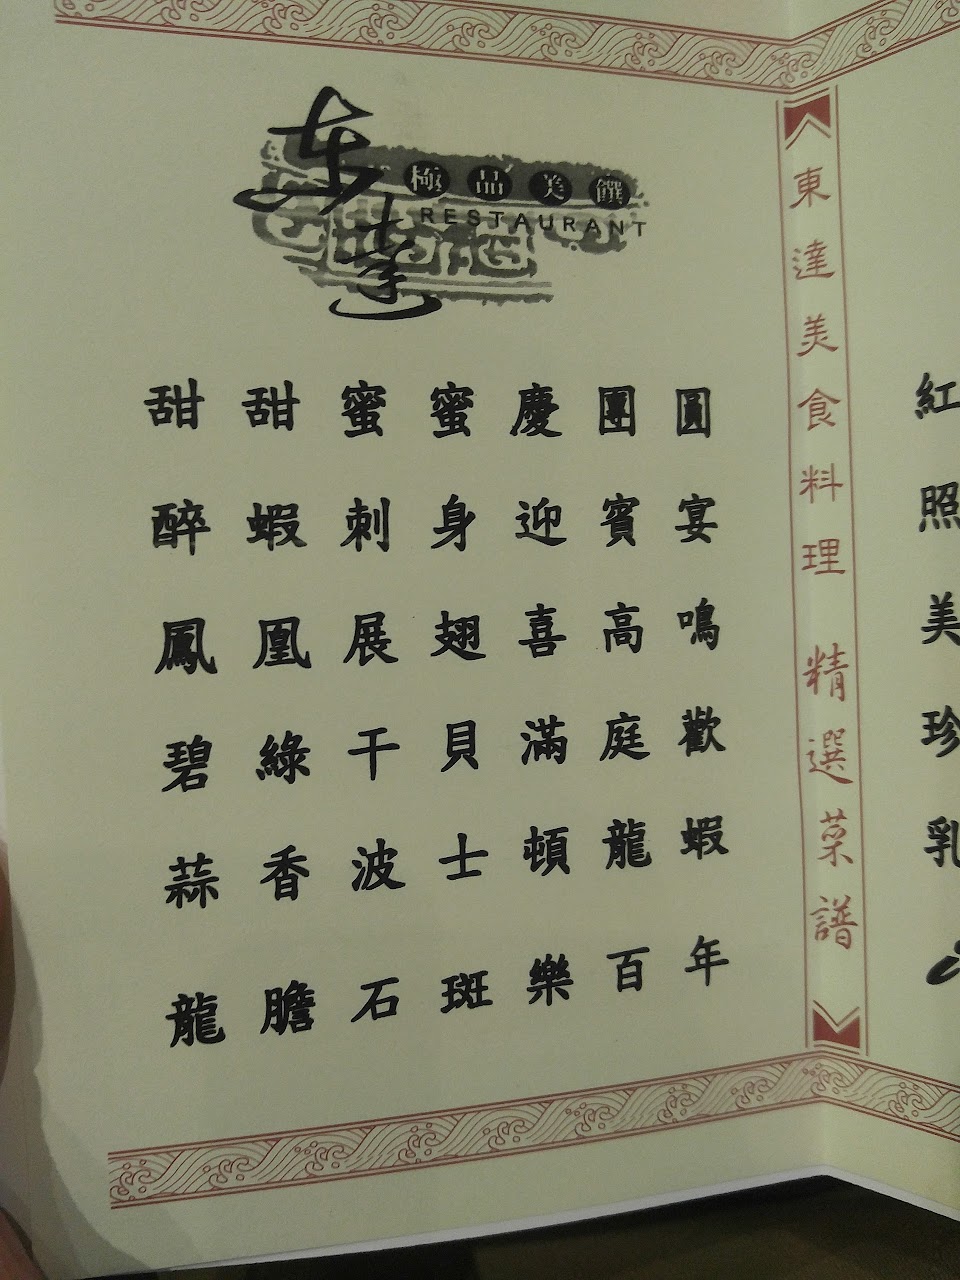 东達
極品美饌
RESTAURANT
甜甜蜜蜜慶團圓
醉蝦刺身迎賓宴
鳳凰展翅喜高鳴
碧綠干貝滿庭歡
蒜香波士頓龍蝦
龍膽石斑樂百年
東達美食料理 精選菜譜
紅
照
美
珍
乳